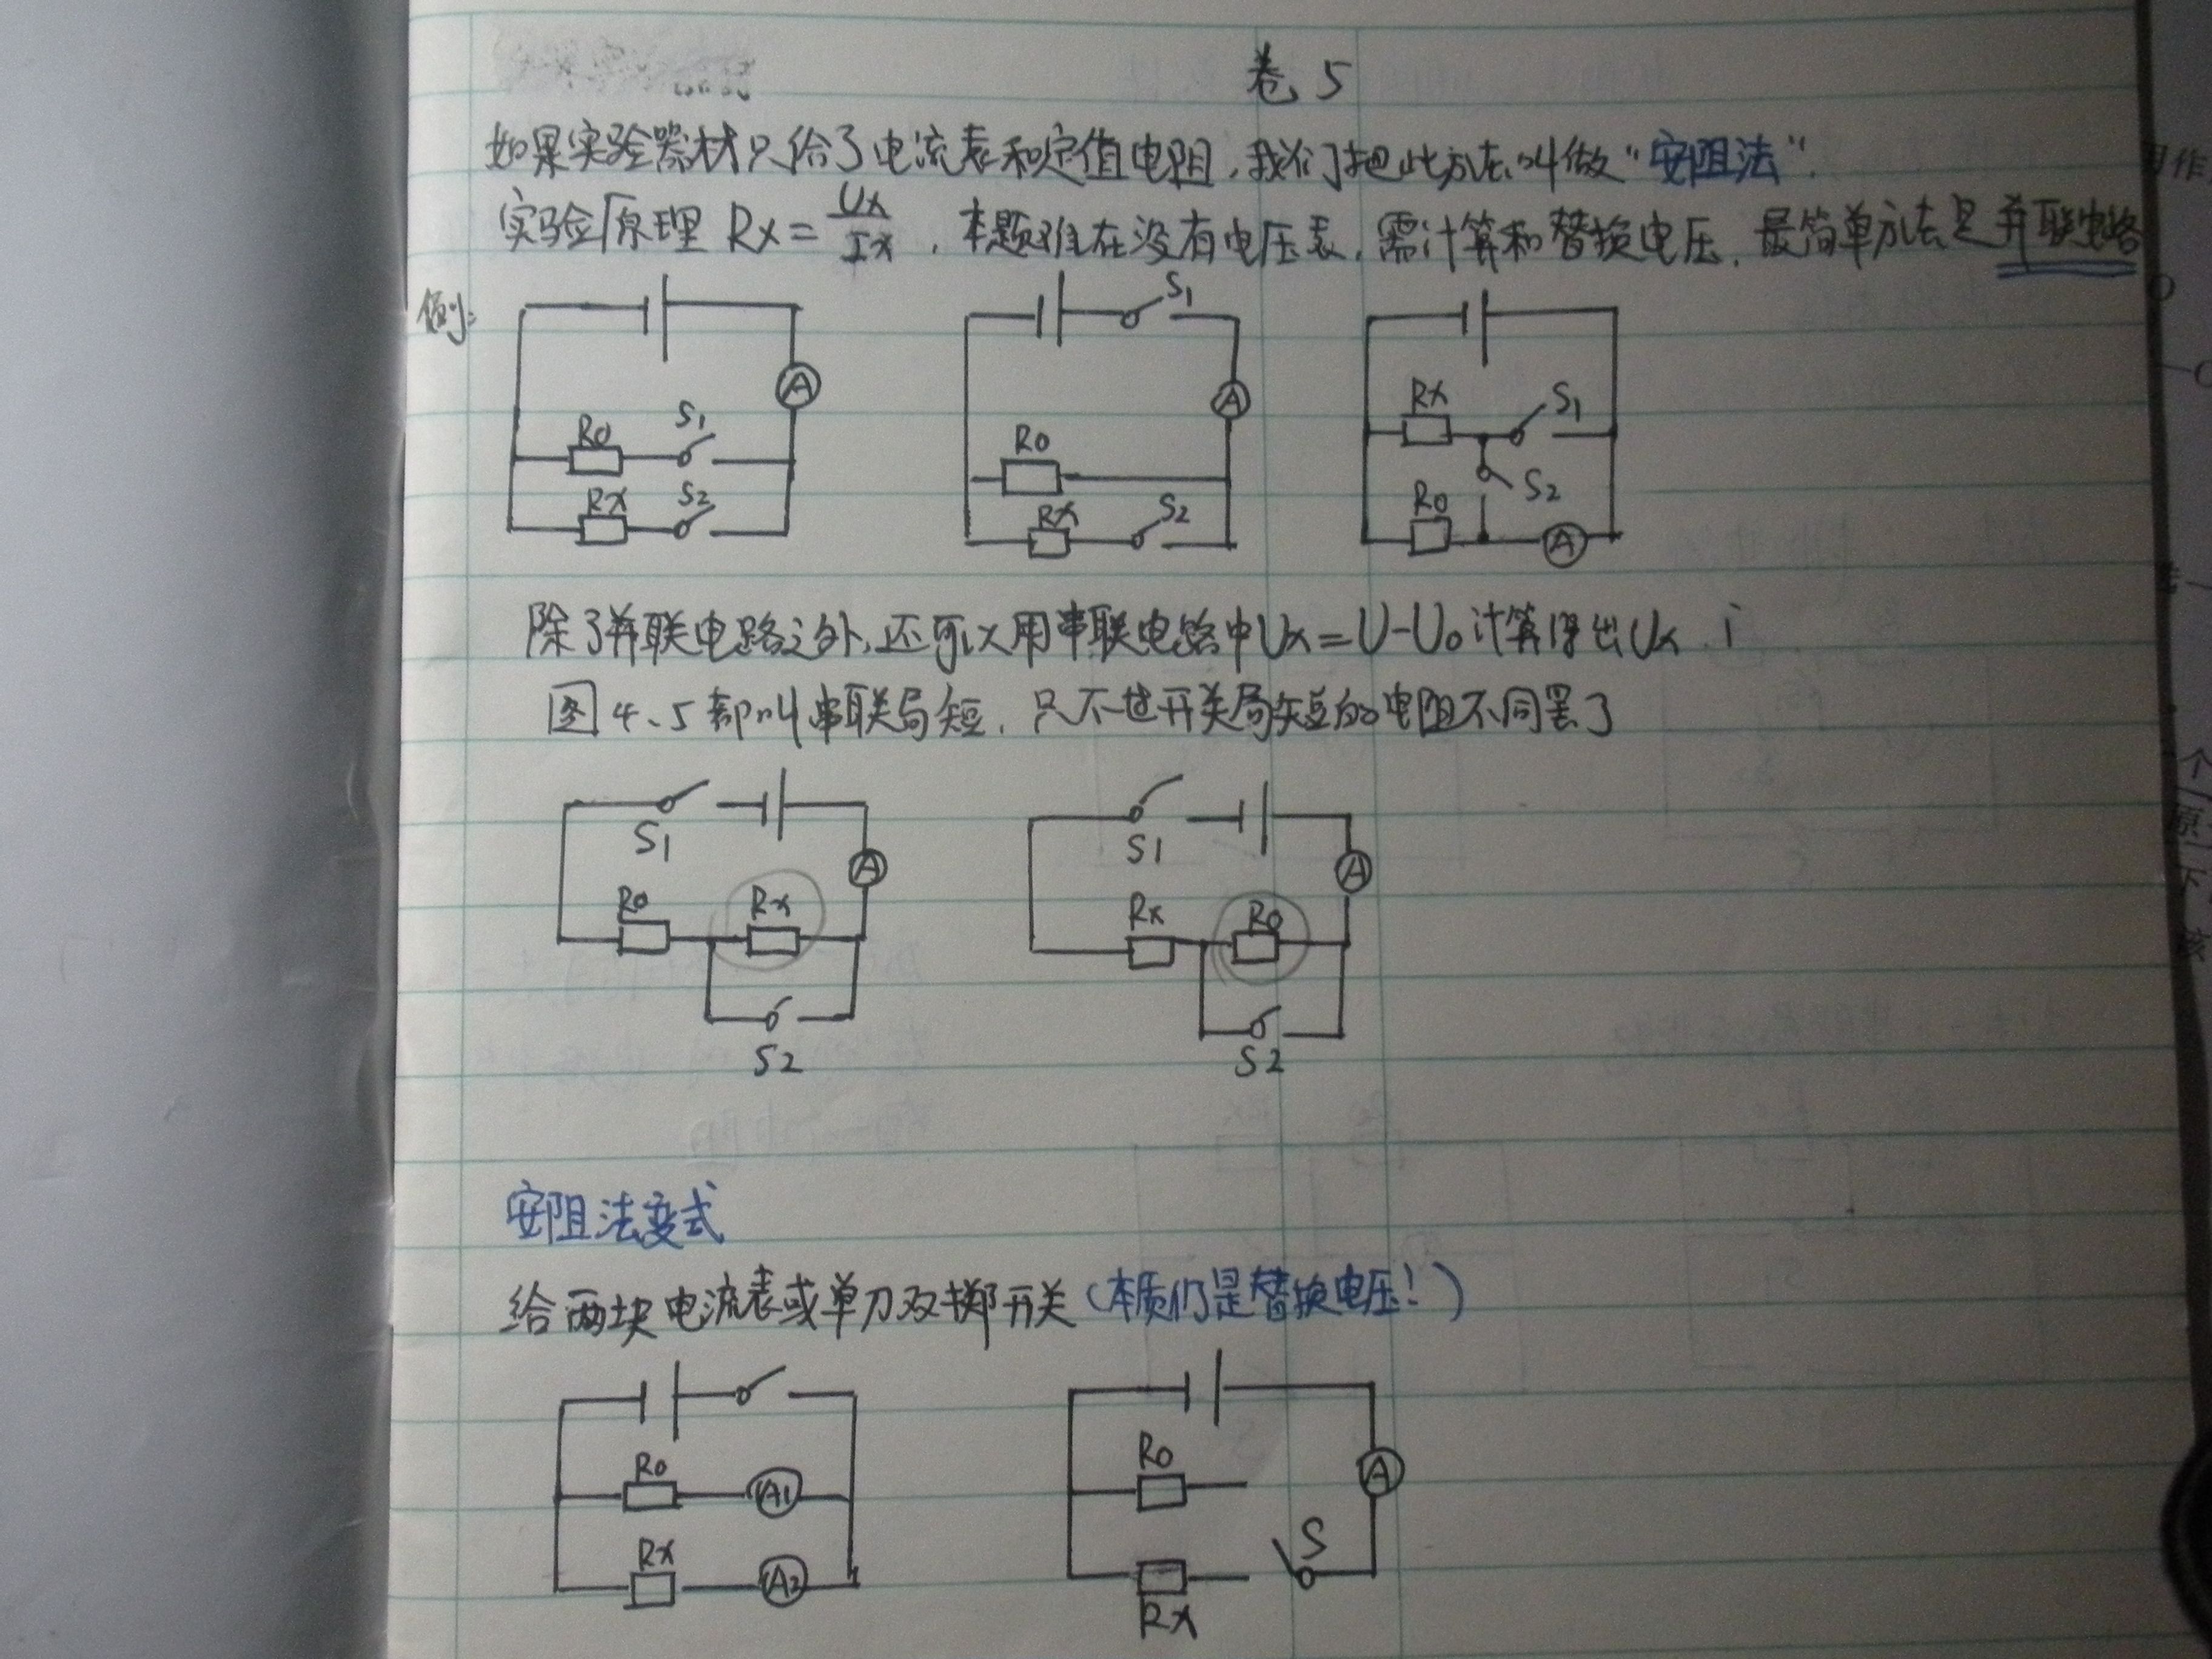 卷5
如果实验器材只给了电流表和定值电阻,我们把此方法叫做“安阻法”.
实验原理 Rx=Ux/Ix,本题难在没有电压表,需计算和替换电压,最简单方法是并联电路
例:
S1
A
A
Rx
S1
R0
S1
R0
S2
Rx
S2
Rx
S2
R0
A
除了并联电路之外,还可以用串联电路中Ux=U-U0计算得出Ux
图4、5都叫串联局短,只不过开关局短的电阻不同罢了
S1
A
S1
A
R0
Rx
Rx
R0
S2
S2
安阻法变式
给两块电流表或单刀双掷开关(本质仍是替换电压!)
R0
A1
R0
A
Rx
A2
S
Rx